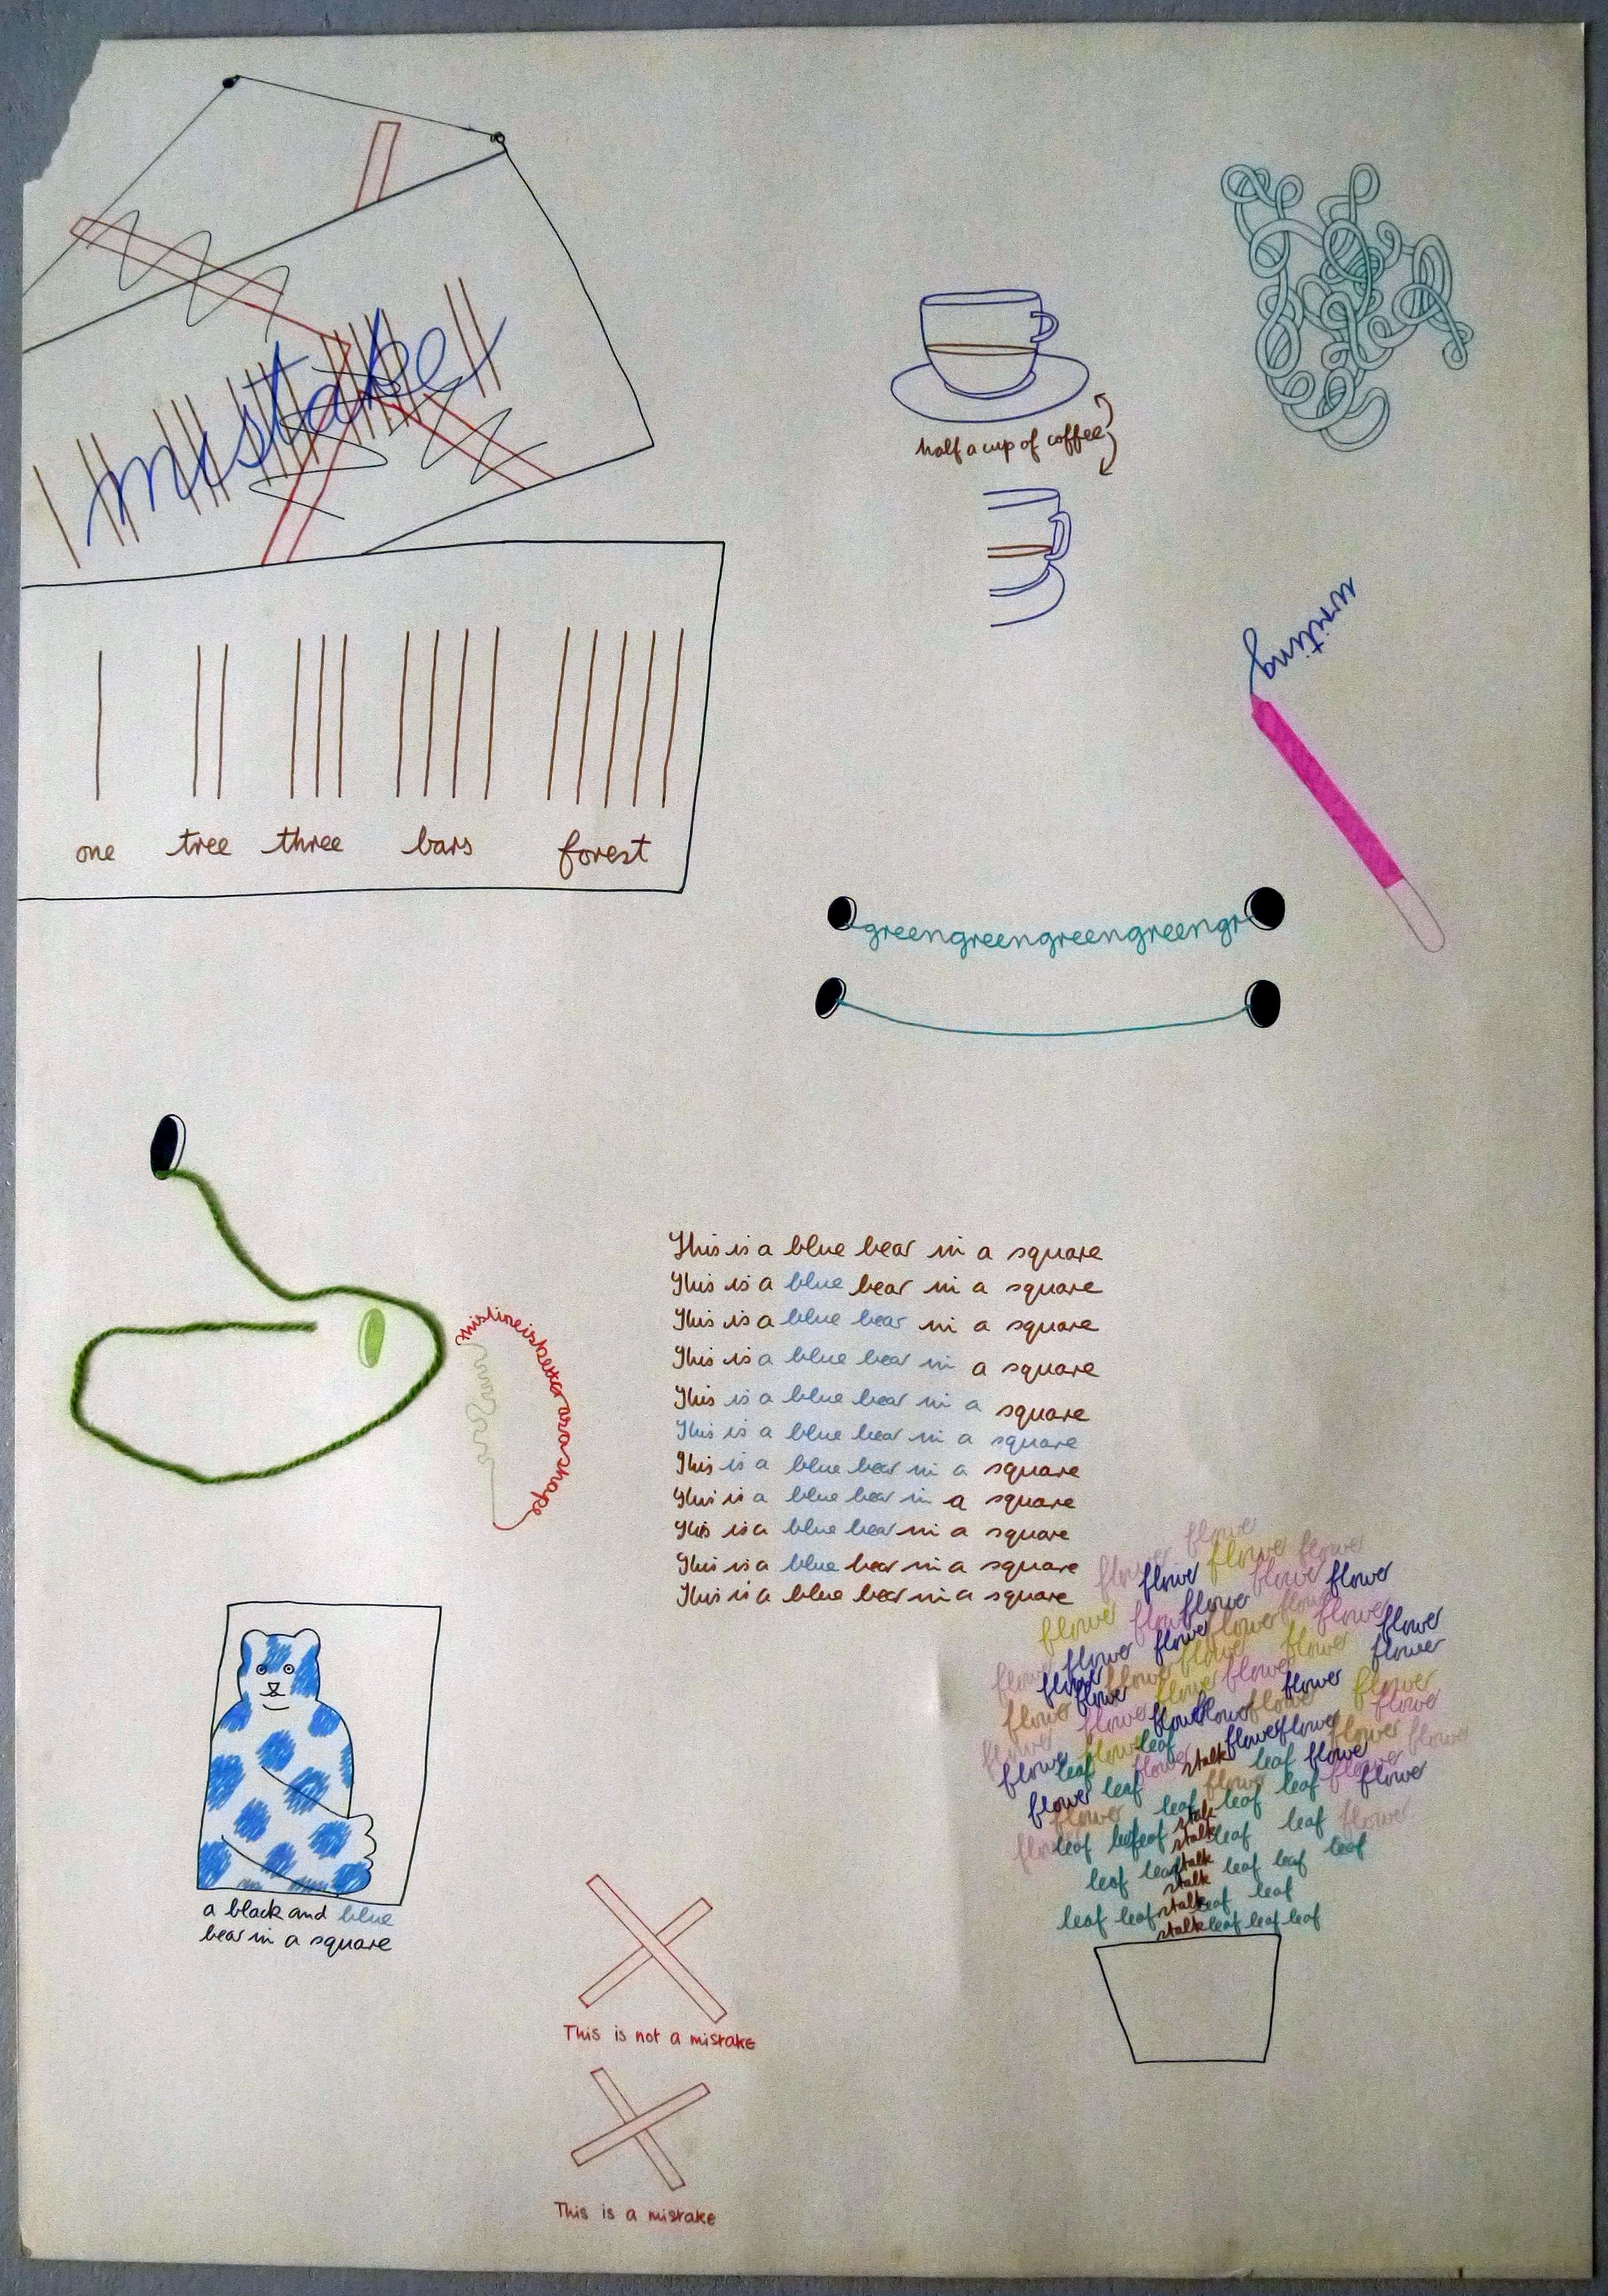 mistake
half a cup of coffee
writing
one tree three bars forest
greengreengreengreengr
This is a blue bear in a square
This is a blue bear in a square
This is a blue bear in a square
This is a blue bear in a square
This is a blue bear in a square
This is a blue bear in a square
This is a blue bear in a square
This is a blue bear in a square
This is a blue bear in a square
This is a blue bear in a square
This is a blue bear in a square
thislineisbetterasashape
flower
flower flower flower
flower flower flower
flower flower flower flower
flower flower flower flower
flower flower flower flower
flower flower flower flower
flower flower flower flower
flower flower flower flower
flower flower leaf flower flower flower
flower leaf flower stalk leaf flower flower
flower leaf flower leaf flower
flower leaf stalk leaf leaf flower
leaf leaf leaf stalk leaf leaf
leaf leaf stalk leaf leaf
stalk
leaf leaf stalk leaf leaf
stalk leaf leaf leaf
a black and blue
bear in a square
This is not a mistake
This is a mistake